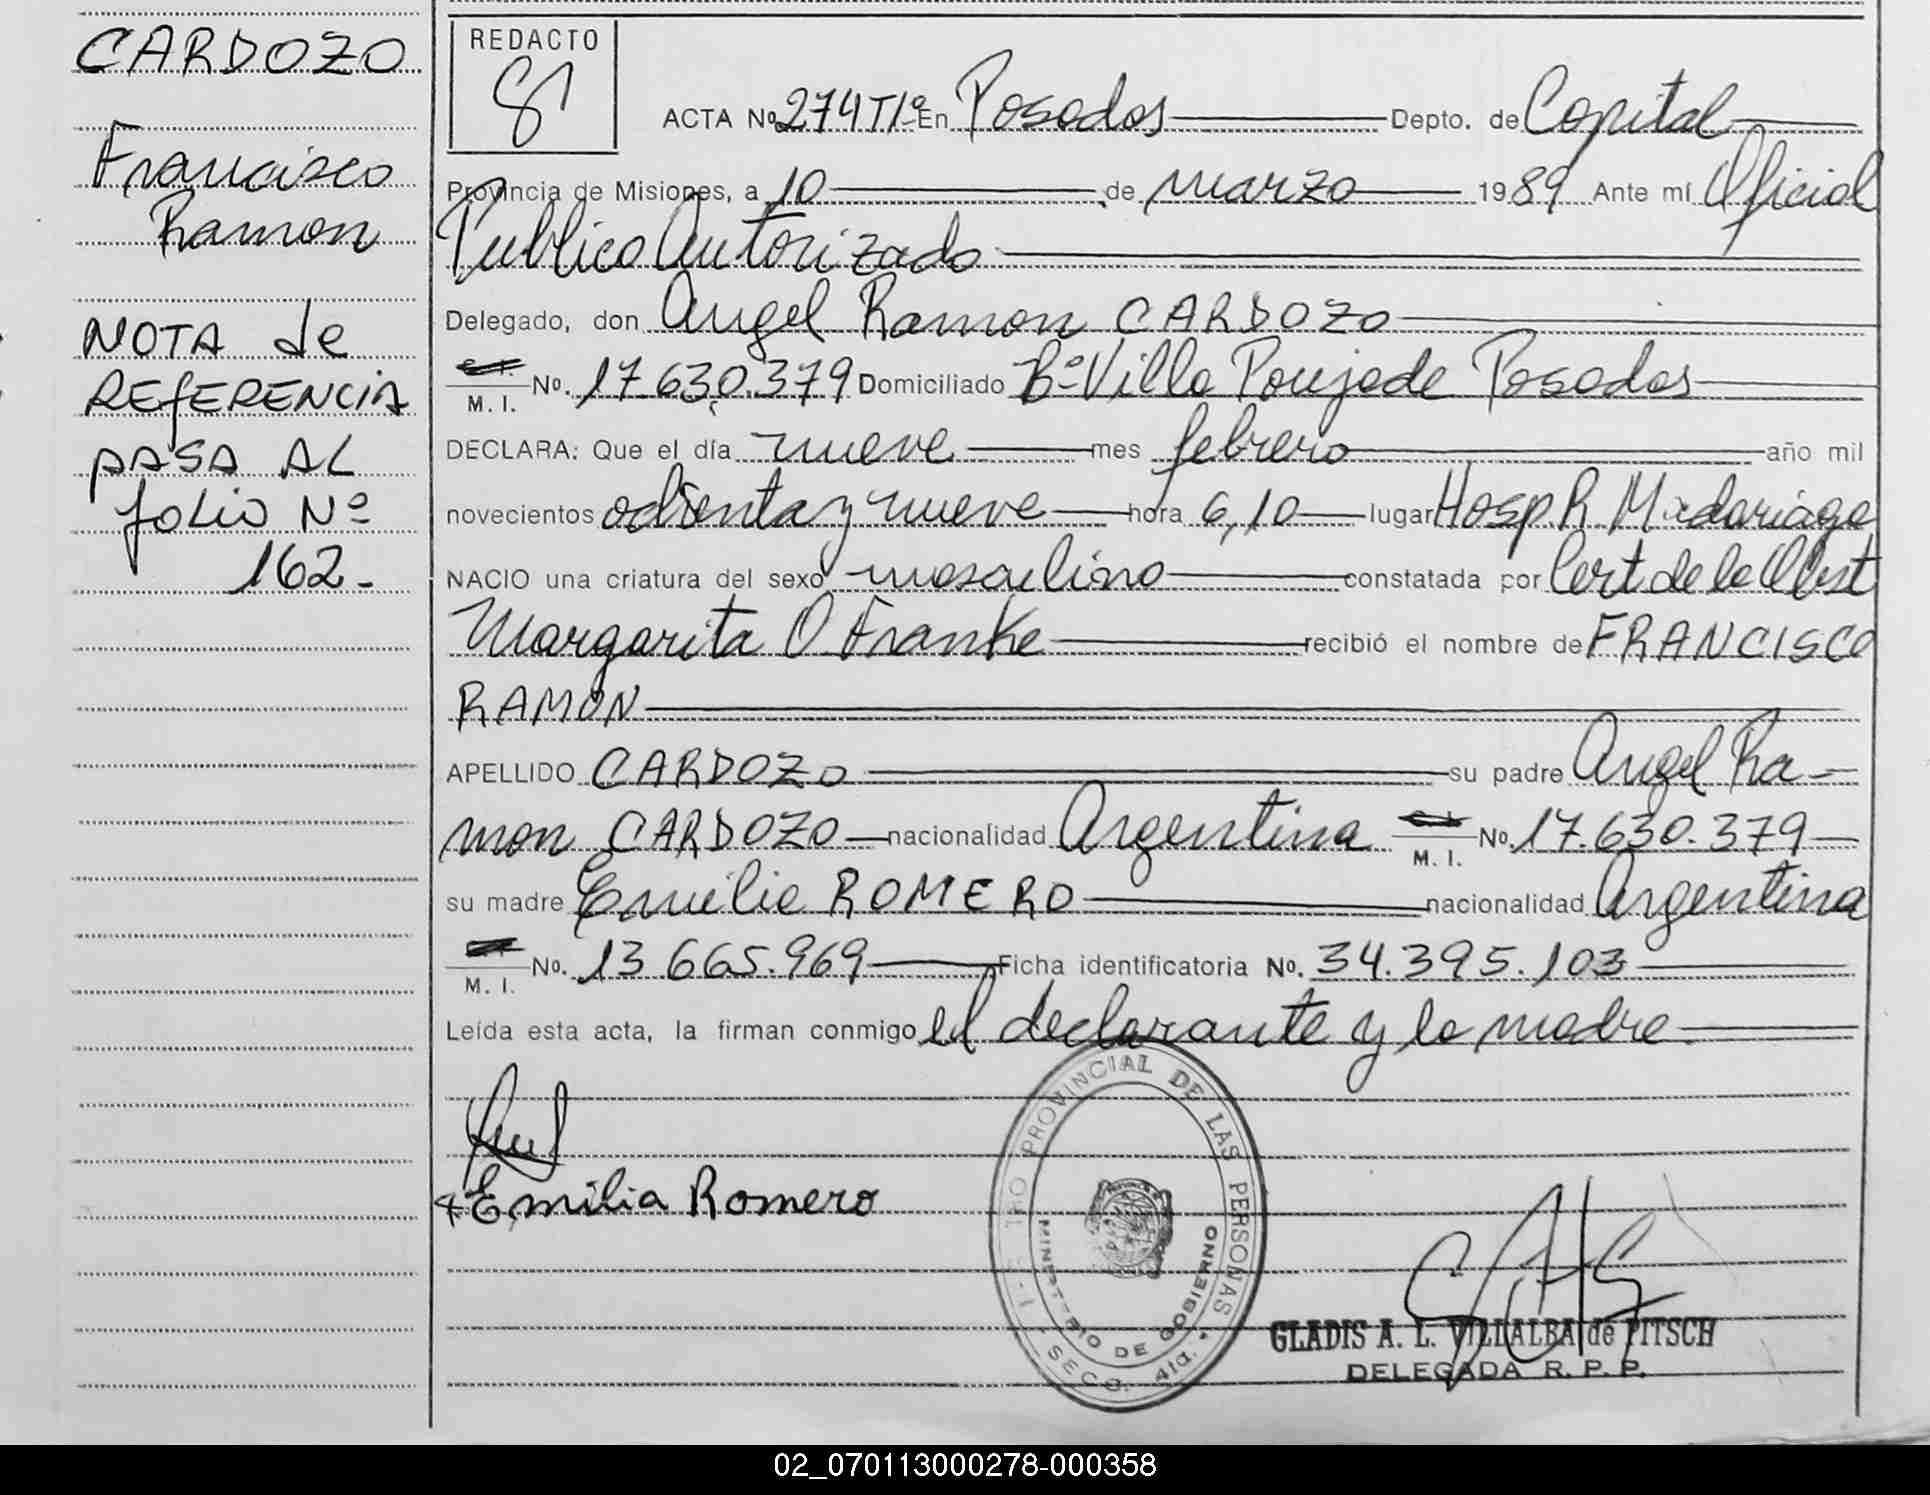 CARDOZO
Francisco
Ramon
NOTA de
REFERENCIA
PASA AL
folio Nº
162-
REDACTO
ACTA Nº 274 T1º En Posadas Depto. de Capital
Provincia de Misiones, a 10 de marzo 1989 Ante mí Oficial
Publico Autorizado
Delegado, don Angel Ramon CARDOZO
M. I. No. 17.630.379 Domiciliado Bº Villa Poujade Posadas
DECLARA: Que el día nueve mes febrero año mil
novecientos ochenta y nueve hora 6,10 lugar Hosp. R Madariaga
NACIO una criatura del sexo masculino constatada por Cert de la Obst
Margarita O Franke recibió el nombre de FRANCISCO
RAMON
APELLIDO CARDOZO su padre Angel Ra-
mon CARDOZO nacionalidad Argentina M. I. No. 17.630.379
su madre Emilia ROMERO nacionalidad Argentina
M. I. No. 13 665.969 Ficha identificatoria No. 34.395.103
Leída esta acta, la firman conmigo el declarante y la madre
Emilia Romero
PROVINCIAL DE LAS PERSONAS
MINISTERIO DE GOBIERNO
SECC. 4ta.
GLADIS A. L. VILLALBA de PITSCH
DELEGADA R. P. P.
02_070113000278-000358